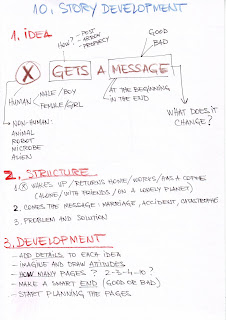 10. STORY DEVELOPMENT
1. iDEA
GOOD
BAD
HOW?
- POST
- PROJECT
X GETS A MESSAGE
HUMAN
MALE / BOY
FEMALE / GIRL
AT THE BEGINNING
IN THE END
WHAT DOES IT
CHANGE?
NON-HUMAN:
ANIMAL
ROBOT
MICROBE
ALIEN
2. STRUCTURE
1. X WAKES UP / RETURNS HOME / WORKS / HAS A COFFEE
(ALONE / WITH FRIENDS / ON A LONELY PLANET)
2. COMES THE MESSAGE: MARRIAGE, ACCIDENT, CATASTROPHE
3. PROBLEM AND SOLUTION
3. DEVELOPMENT
- ADD DETAILS TO EACH IDEA
- IMAGINE AND DRAW ATTITUDES
- HOW MANY PAGES? 2-3-4-10?
- MAKE A SMART END (GOOD OR BAD)
- START PLANNING THE PAGES